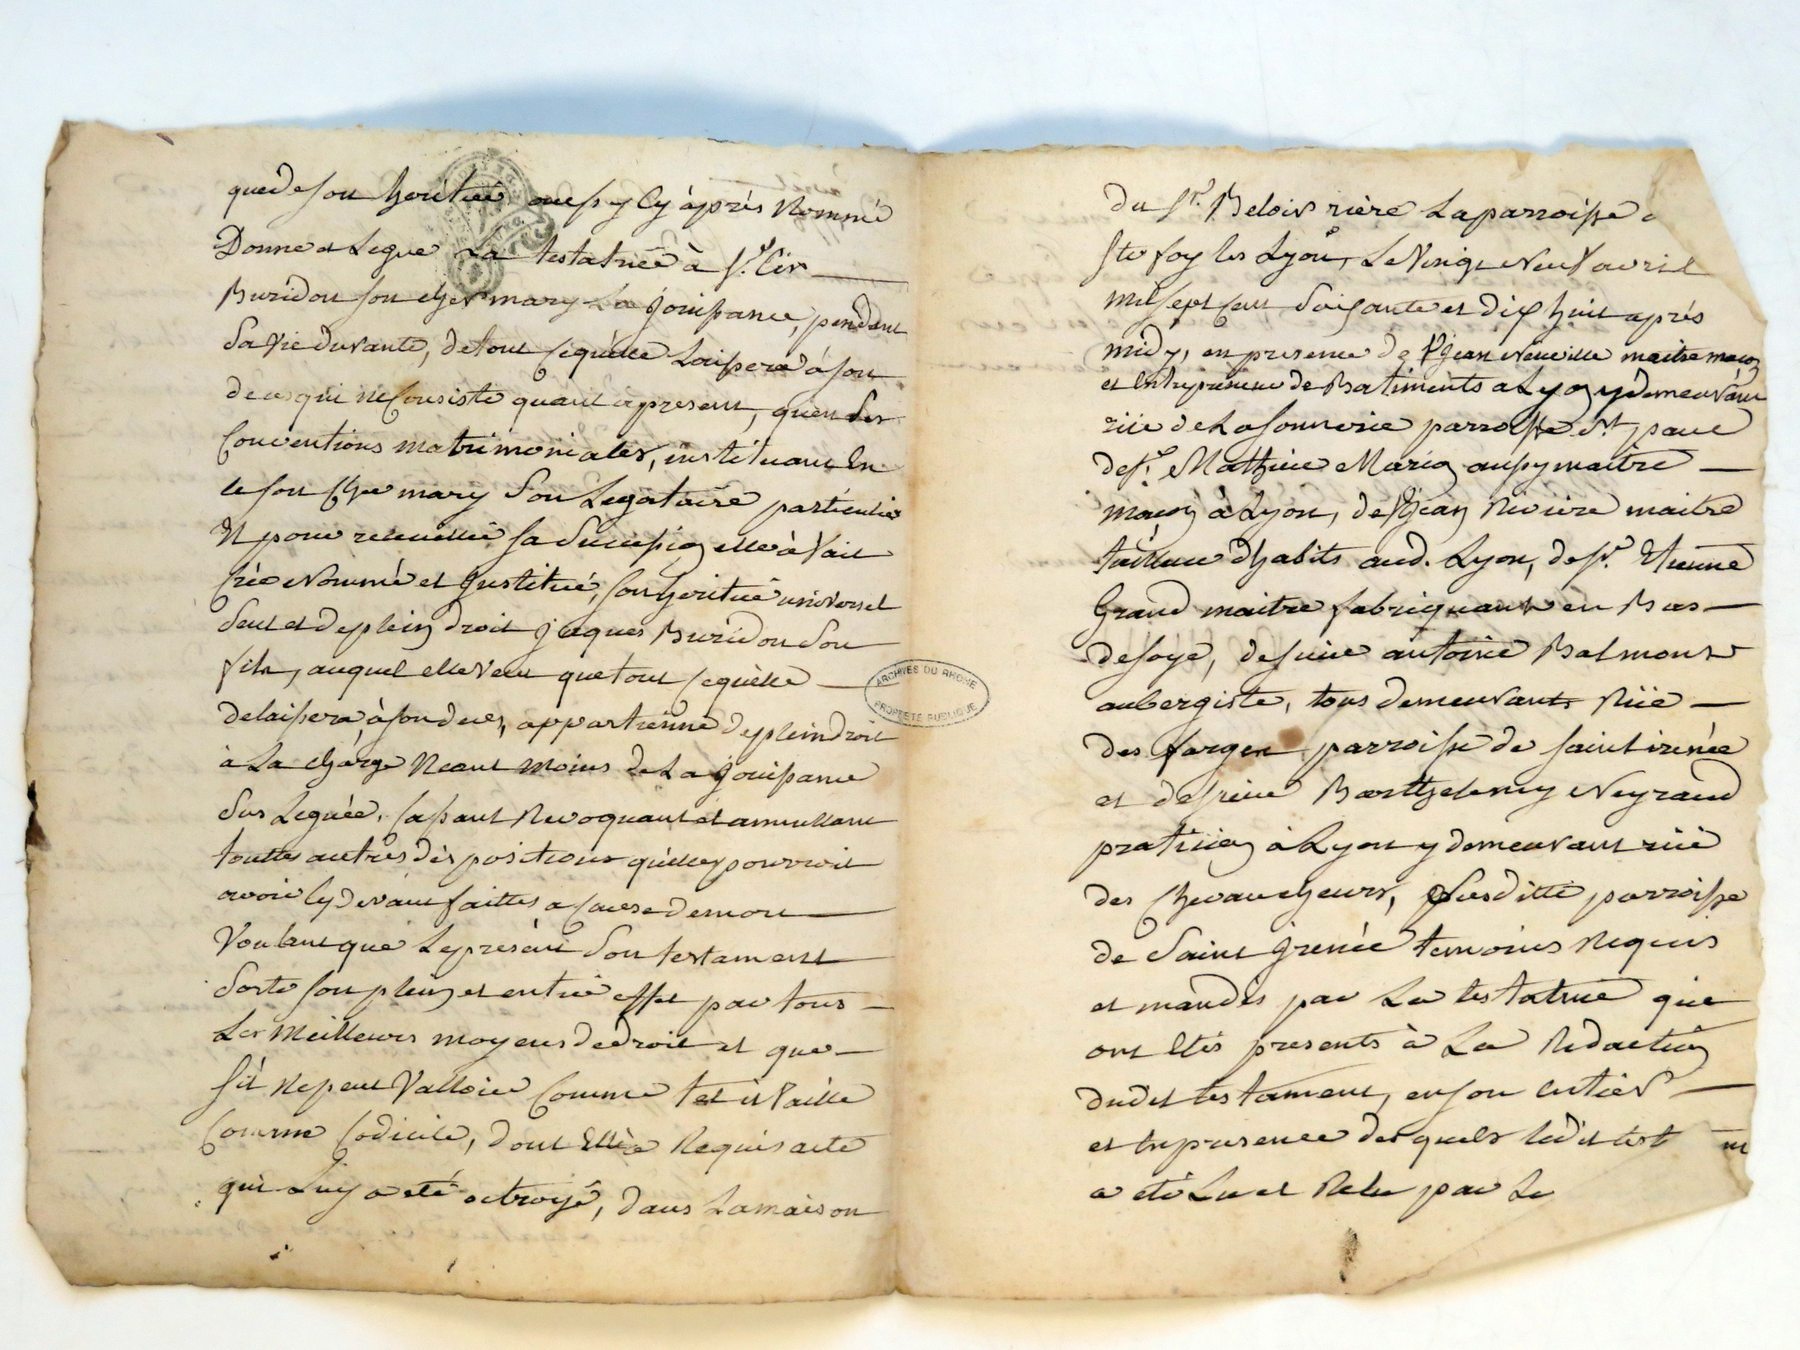 que de son heritié aussy cy àprès Nommé
Donne et Legue La testatrice à sr. Cir
Buridon son cher mary La jouissance, pendant
Sa vie durante, de tout ce qu'elle Laissera à son
deces qui ne Consiste quant à present, qu'en Ses
Conventions matrimoniales, instituant En
ce son cher mary Son Legataire particulier
Et pour recueillir sa Succession elle à fait
Créé Nommé et Institué, son heritié universel
Seul et de plein droit jaques Buridon Son
fils, auquel elle veut que tout ce qu'elle
delaissera, à son deces, appartienne de plein droit
à La charge Neant moins de La jouissance
Sus Leguée, Cassant Revoquant et annullant
touttes autres dispositions qu'elle pourroit
avoir cy devant faittes à cause de mort
Voulant que Le present Son testament
Sorte son plein et entier effet par tous
Les Meilleurs moyens de droit et que
s'il Ne peut Valloir Comme tel il vaille
Comme Codicile, dont Elle à Requis acte
qui Luy a eté octroyé, dans La maison
du sr. Beloir rière La parroisse
ste foy les Lyon, Le Vingt Neuf avril
mil sept cent Soisante et dix huit après
midy, en presence de sr jean Neuville maitre maçon
et Entrepreneur de Batiments a Lyon y demeurant
rüe de La fonnerie parroisse St paul
de sr. Mathieu Marion aussy maitre
maçon à Lyon, de sr jean Riviere maitre
tailleur d'habits aud. Lyon, de sr. Etienne
Grand maitre fabriquant en Bas
de soye, de sieur antoine Balmont
aubergiste, tous demeurants Rüe
des farges parroisse de saint irenée
et de sieur Barthelemy Neyraud
praticien à Lyon y demeurant rüe
des Chevaucheurs, susditte parroisse
de Saint Irenée temoins Requis
et mandés par La testatrice qui
ont Etés presents à La Redaction
dudit testament, en son entier
et En presence desquels ledit test nt
a eté Lu et Relu par Le
ARCHIVES DU RHONE
PROPRIETE PUBLIQUE